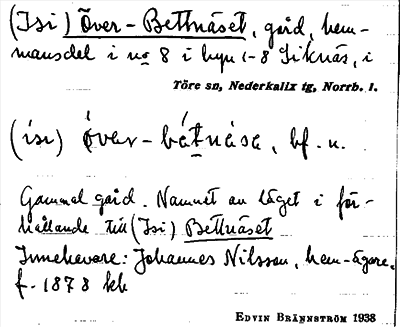 (Isi) Över-Bettnäset, gård, hem-
mansdel i no 8 i byn 1-8 Siknäs, i
Töre sn, Nederkalix tg, Norrb. l.
(ísi) óver-bátnäsa, bf. n.
Gammal gård. Namnet av läget i för-
hållande till (Isi) Bettnäset
Innehavare: Johannes Nilsson, hem.-ägare,
f. 1878 kb
EDVIN BRÄNNSTRÖM 1938